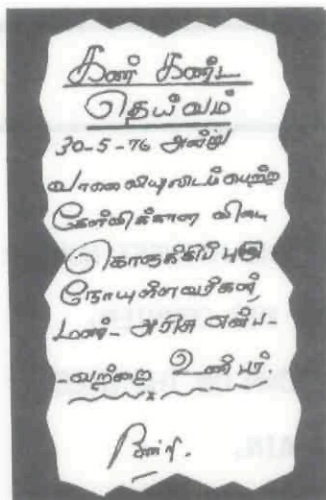 கண் கண்ட
தெய்வம்
30-5-76 அன்று
வானொலியிலிடம்பெற்ற
கேள்விக்கான விடை
கொளுக்கிப் புழு
நோயுள்ளவர்கள்,
மண் - அரிசி என்ப-
-வற்றை உண்பர்.
நன்றி.